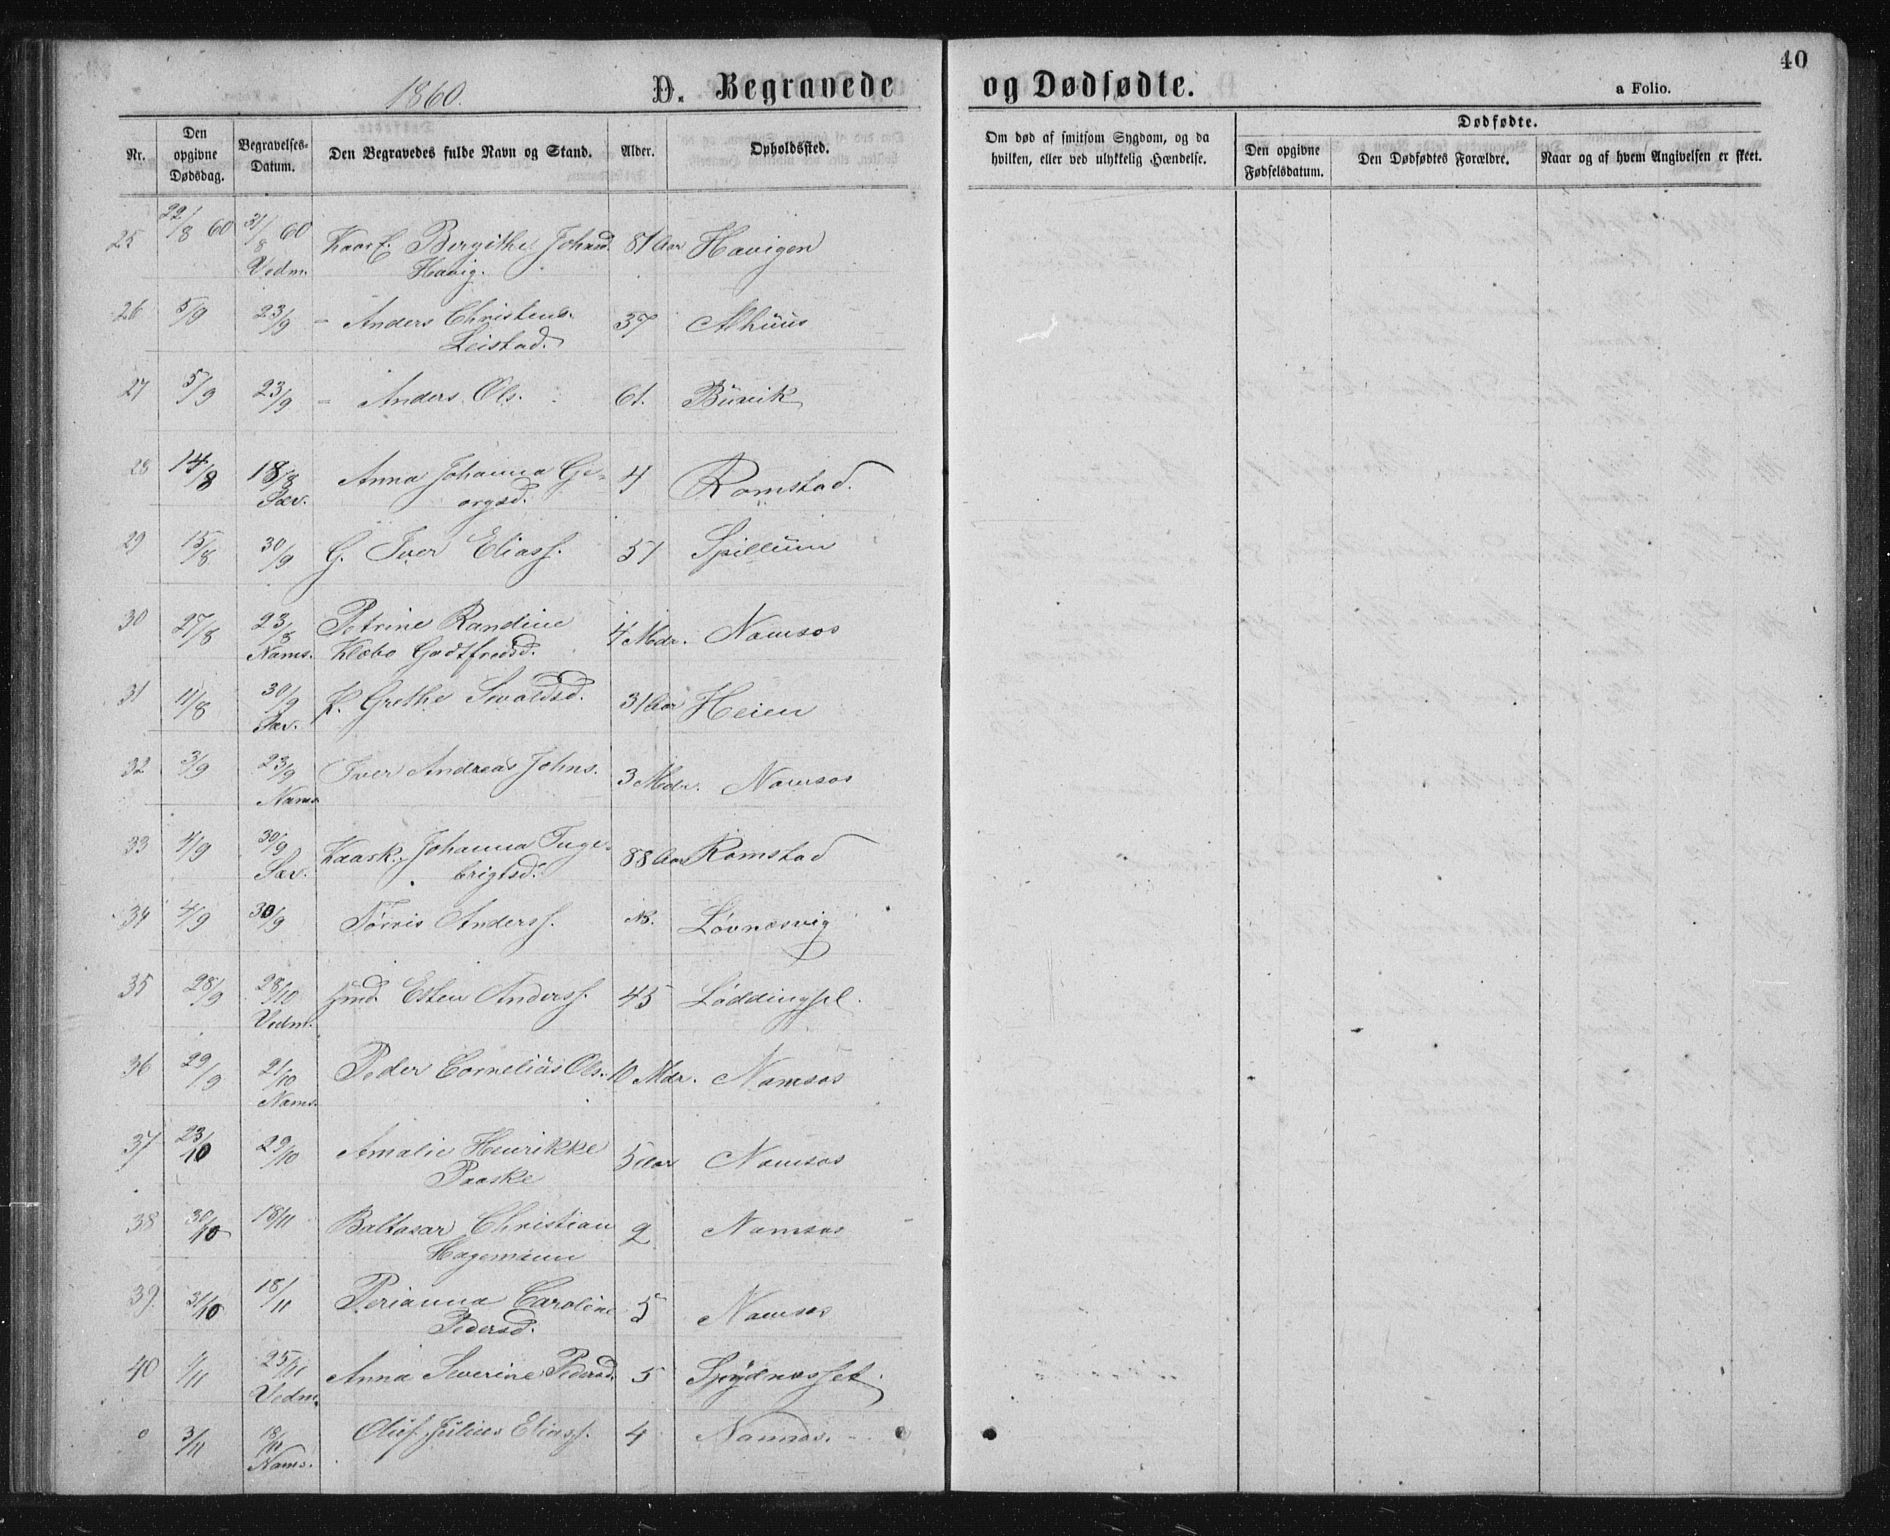 40
1860.
D. Begravede og Dødfødte.
a Folio.
Nr. Den opgivne Dødsdag. Begravelses-Datum. Den Begravedes fulde Navn og Stand. Alder. Opholdssted. Om død af smitsom Sygdom, og da hvilken, eller ved ulykkelig Hændelse. Dødfødte. Den opgivne Fødselsdatum. Den Dødfødtes Forældre. Naar og af hvem Angivelsen er skeet.
25 22/8 60 31/8 60 Bergithe Johansd 81 Aar Havigen
Vedm. Havig.
26 5/9 23/9 - Anders Christens. 37 Alhuus
Leistad.
27 5/9 23/9 - Anders Ols. 61. Buvik
28 14/8 18/8 Anna Johanna Ge- 4 Romstad.
Sæv. orgsd.
29 15/8 30/9 G. Iver Eliass. 51 Spillum
30 27/8 23/8 Petrine Randine 4 Mdr. Namsos
Nams. Klæbo Godtfredsd.
31 11/8 30/9 K. Grethe Sivaldsd. 31 Aar Heien
Sæv.
32 3/9 23/9 Iver Andreas Johns. 3 Mdr. Namsos
Nams
33 4/9 30/9 Kaask. Johanna Inge- 88 Aar Romstad
Sæv. brigtsd.
34 4/9 30/9 Tørris Anderss. Løvnæsvig
35 28/9 28/10 Gmd. Esten Anderss. 45 Løddingsel.
Vedm.
36 29/9 21/10 Peder Cornelius Ols. 10 Mdr. Namsos
Nams.
37 23/10 29/10 Amalie Henrikke 5 Aar Namsos
Paaske
38 30/10 18/11 Baltasar Christian 2 Namsos
Hagemann
39. 31/10 18/11 Perianna Caroline 5 Namsos
Pedersd.
40 1/11 25/11 Anna Severine Pedersd. 5 Spydnæsset
Vedm.
0 3/11 18/11 Oluf Julius Eliass. 4 Namsos.
Nams.